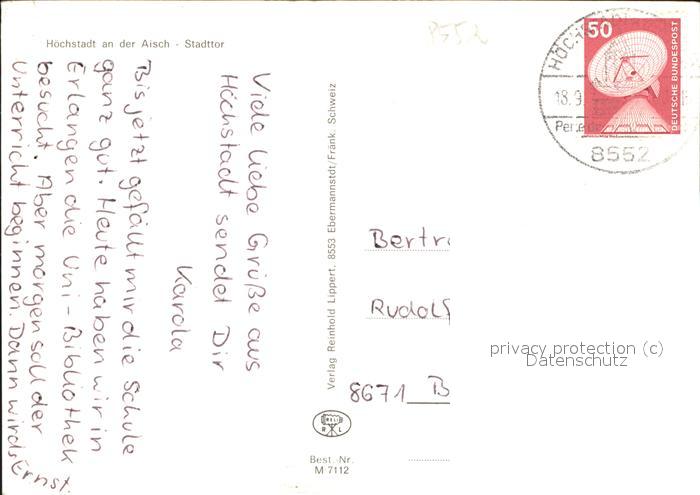 Höchstadt an der Aisch - Stadttor
Viele liebe Grüße aus
Höchstadt sendet Dir
Karola
Bis jetzt gefällt mir die Schule
ganz gut. Heute haben wir in
Erlangen die Uni-Bibliothek
besucht. Aber morgen soll der
Unterricht beginnen. Dann wirds Ernst.
Verlag Reinhold Lippert, 8553 Ebermannstdt/Fränk. Schweiz
RELI
R L
Best.-Nr.
M 7112
8552
50
DEUTSCHE BUNDESPOST
HÖCHSTAD
18.9.
Perle de
8552
Bertr
Rudolf
8671 B
privacy protection (c)
Datenschutz